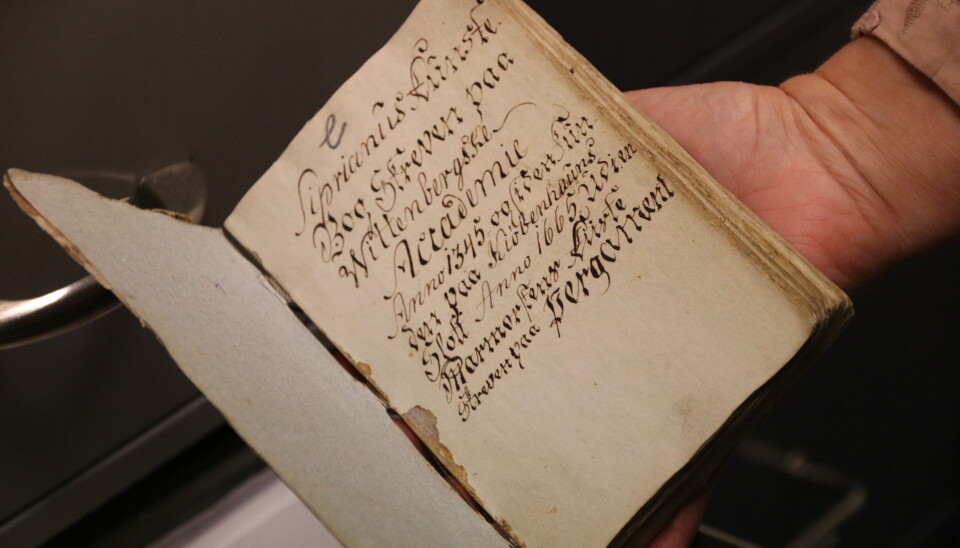 Siprianus Kunste
Bog Skreven paa
Wittenbergske
Accademie
Anno 1345 og siden fun
den paa Kiøbenhauns
Slott Anno 1665 Udi en
Marmorstens Kiiste
Skreven paa Pergament
e